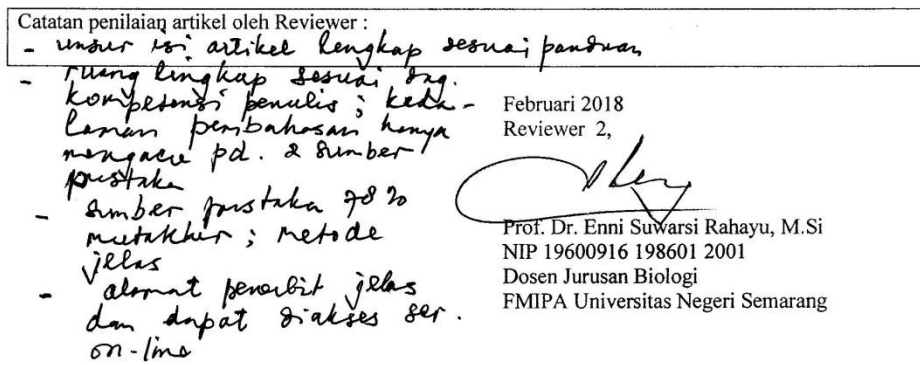 Catatan penilaian artikel oleh Reviewer :
- unsur isi artikel lengkap sesuai panduan
- ruang lingkup sesuai dng.
kompetensi penulis ; keda-
laman pembahasan hanya
mengacu pd. 2 sumber
pustaka
- sumber pustaka 78 %
mutakhir ; metode
jelas
- alamat penerbit jelas
dan dapat diakses ser.
on-line
Februari 2018
Reviewer 2,
Prof. Dr. Enni Suwarsi Rahayu, M.Si
NIP 19600916 198601 2001
Dosen Jurusan Biologi
FMIPA Universitas Negeri Semarang